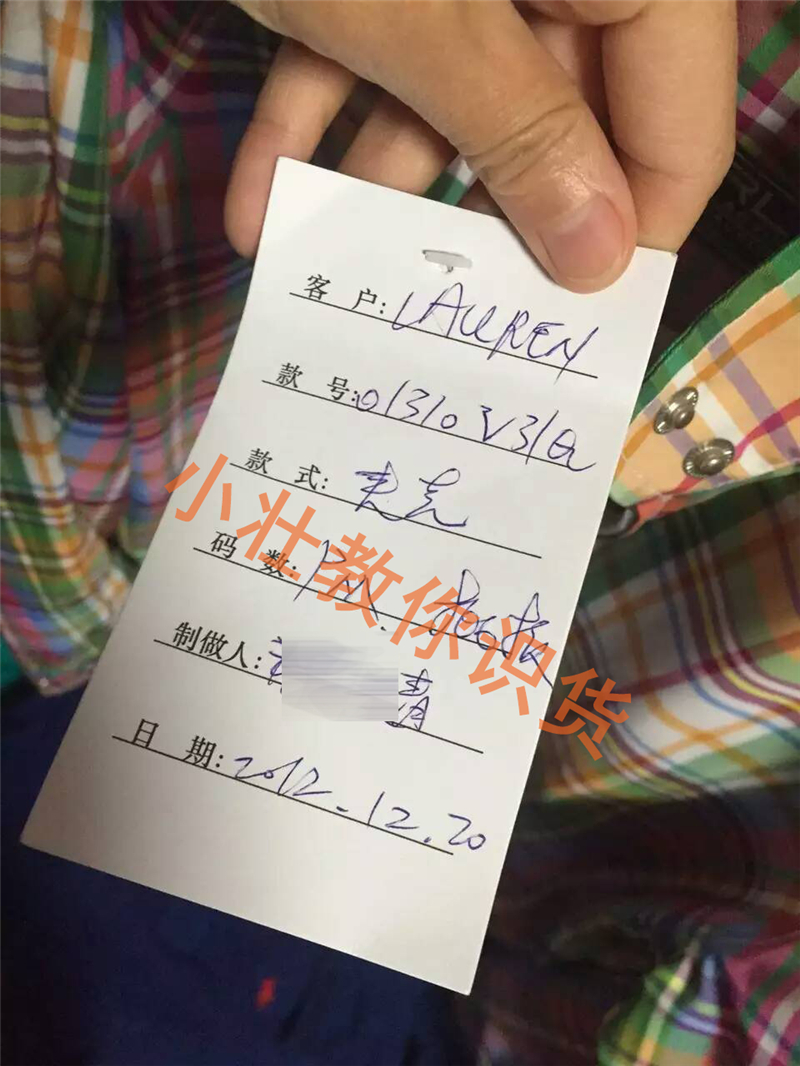 RL
客户: LAUREN
款号: 01310V31Q
款式: 夹克
码数: PM.
制做人: 青
日期: 2012.12.20
小壮教你识货